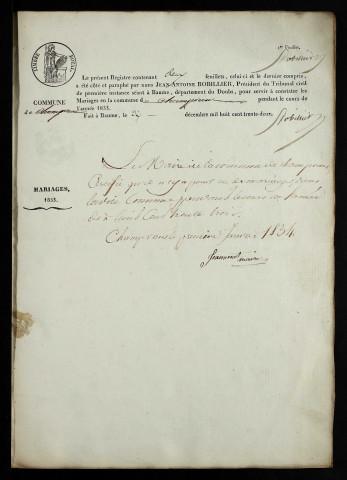 TIMBRE ROYAL
1er Feuillet.
Robillier
Le présent Registre contenant deux feuillets, celui-ci et le dernier compris,
a été côté et paraphé par nous JEAN-ANTOINE ROBILLIER, Président du Tribunal civil
de première instance séant à Baume, département du Doubs, pour servir à constater les
Mariages en la commune de pendant le cours de
l'année 1833.
Fait à Baume, le 27 décembre mil huit cent trente-deux.
Robillier
COMMUNE
de
MARIAGES,
1833.
Le Maire de la commune de
Certifie qu'il n'y a point eu de mariages dans
la dite Commune pendant le cours de l'année
mil huit Cent trente trois.
le premier janvier 1834
maire